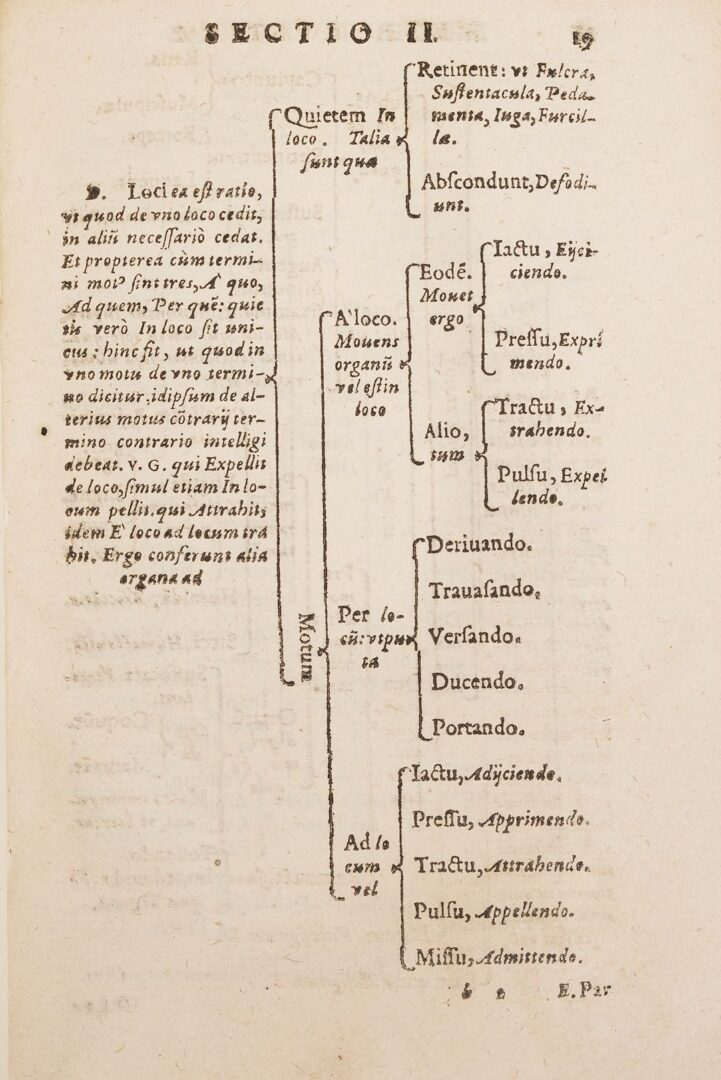 SECTIO II. 19
D. Loci ea est ratio,
vt quod de vno loco cedit,
in aliũ necessariò cedat.
Et propterea cùm termi-
ni motꝰ sint tres, A' quo,
Ad quem, Per quẽ: quie
tis verò In loco sit uni-
cus: hinc fit, ut quod in
vno motu de vno termi-
no dicitur, idipsum de al-
terius motus cõtrarij ter-
mino contrario intelligi
debeat. v. G. qui Expellit
de loco, simul etiam In lo-
cum pellit. qui Attrahit,
idem E' loco ad locum tra
hit. Ergo conferunt alia
organa ad
Quietem In
loco. Talia
sunt quæ
Retinent: vt Fulcra,
Sustentacula, Peda-
menta, Iuga, Furcil-
læ.
Abscondunt, Defodi-
unt.
Motum
A' loco.
Mouens
organũ
vel est in
loco
Eodẽ.
Mouet
ergo
Iactu, Eijci-
ciendo.
Pressu, Expri
mendo.
Alio,
tum
Tractu, Ex-
trahendo.
Pulsu, Expel
lendo.
Per lo-
cũ: vtpu
ta
Deriuando.
Trauasando.
Versando.
Ducendo.
Portando.
Ad lo
cum
vel
Iactu, Adijciendo.
Pressu, Apprimendo.
Tractu, Attrahendo.
Pulsu, Appellendo.
Missu, Admittendo.
b 2 E. Par